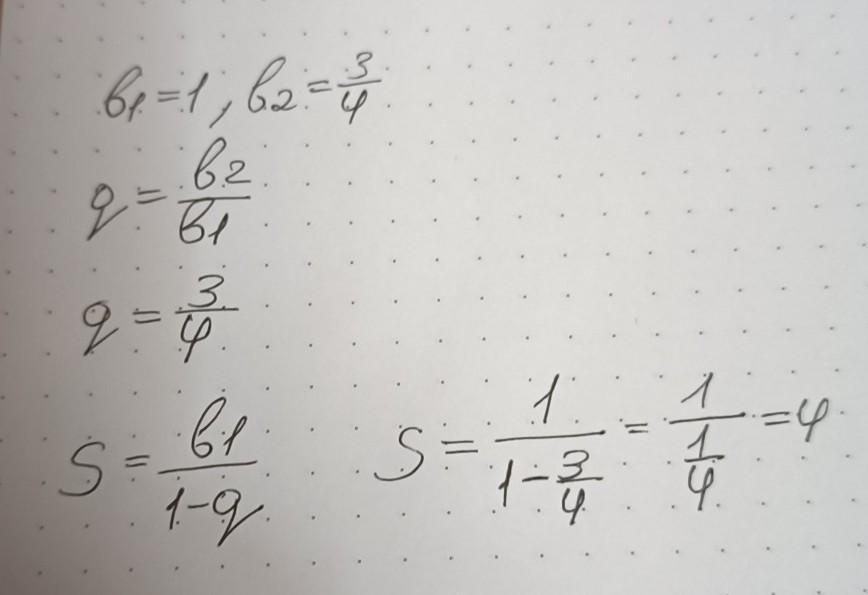 b1 = 1, b2 = 3/4
q = b2/b1
q = 3/4
S = b1/(1-q)    S = 1/(1-3/4) = 1/(1/4) = 4